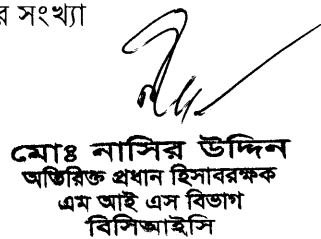 র সংখ্যা
মোঃ নাসির উদ্দিন
অতিরিক্ত প্রধান হিসাবরক্ষক
এম আই এস বিভাগ
বিসিআইসি